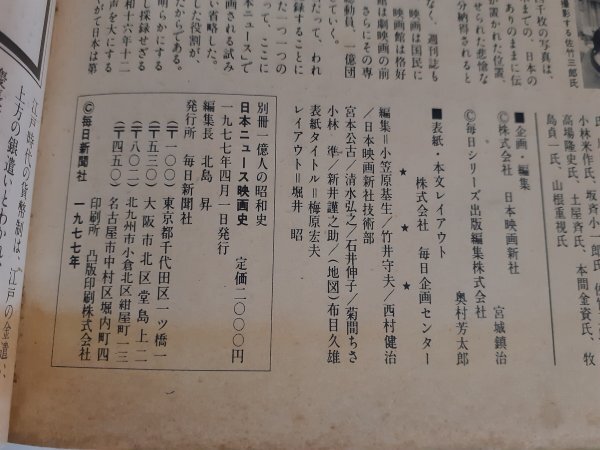 撮影する佐竹三郎氏
四千枚の写真は、
までの、日本の
ありのままに伝
が置かれた位置、
せられた悲愴な
分納得されると
なく、週刊誌も
映画は国民に
映画館は格好
館は劇映画の前
さらにその専
総動員、一億団
ていく。
だって、われ
録することに
た一つ一つの
って、ここに
ニュース」で
画される試み
い省略した。
した役割が、
だからである。
明らかにする
し採録せざる
和十六年十二
声を大にする
がて日本は第
小林米作氏、坂斉小一郎
高場隆史氏、土屋斉氏、本間金資氏、牧
島貞一氏、山根重視氏
■企画・編集
©株式会社 日本映画新社
宮城鎮治
©毎日シリーズ出版編集株式会社
奥村芳太郎
■表紙・本文レイアウト
株式会社 毎日企画センター
★ ★ ★
編集=小笠原基生/竹井守夫/西村健治
/日本映画新社技術部
宮本公占/清水弘之/石井伸子/菊間ちさ
小林 準/新井護之助/(地図)布目久雄
表紙タイトル=梅原宏夫
レイアウト=堀井 昭
別冊一億人の昭和史
日本ニュース映画史 定価二〇〇〇円
一九七七年四月一日発行
編集長 北島 昇
発行所 毎日新聞社
(〒一〇〇)東京都千代田区一ツ橋一
(〒五三〇)大阪市北区堂島上二
(〒八〇二)北九州市小倉北区紺屋町一三
(〒四五〇)名古屋市中村区堀内町四
印刷所 凸版印刷株式会社
©毎日新聞社 一九七七年
江戸時代の貨幣制は、江戸の金遣い、
上方の銀遣いとわかれ